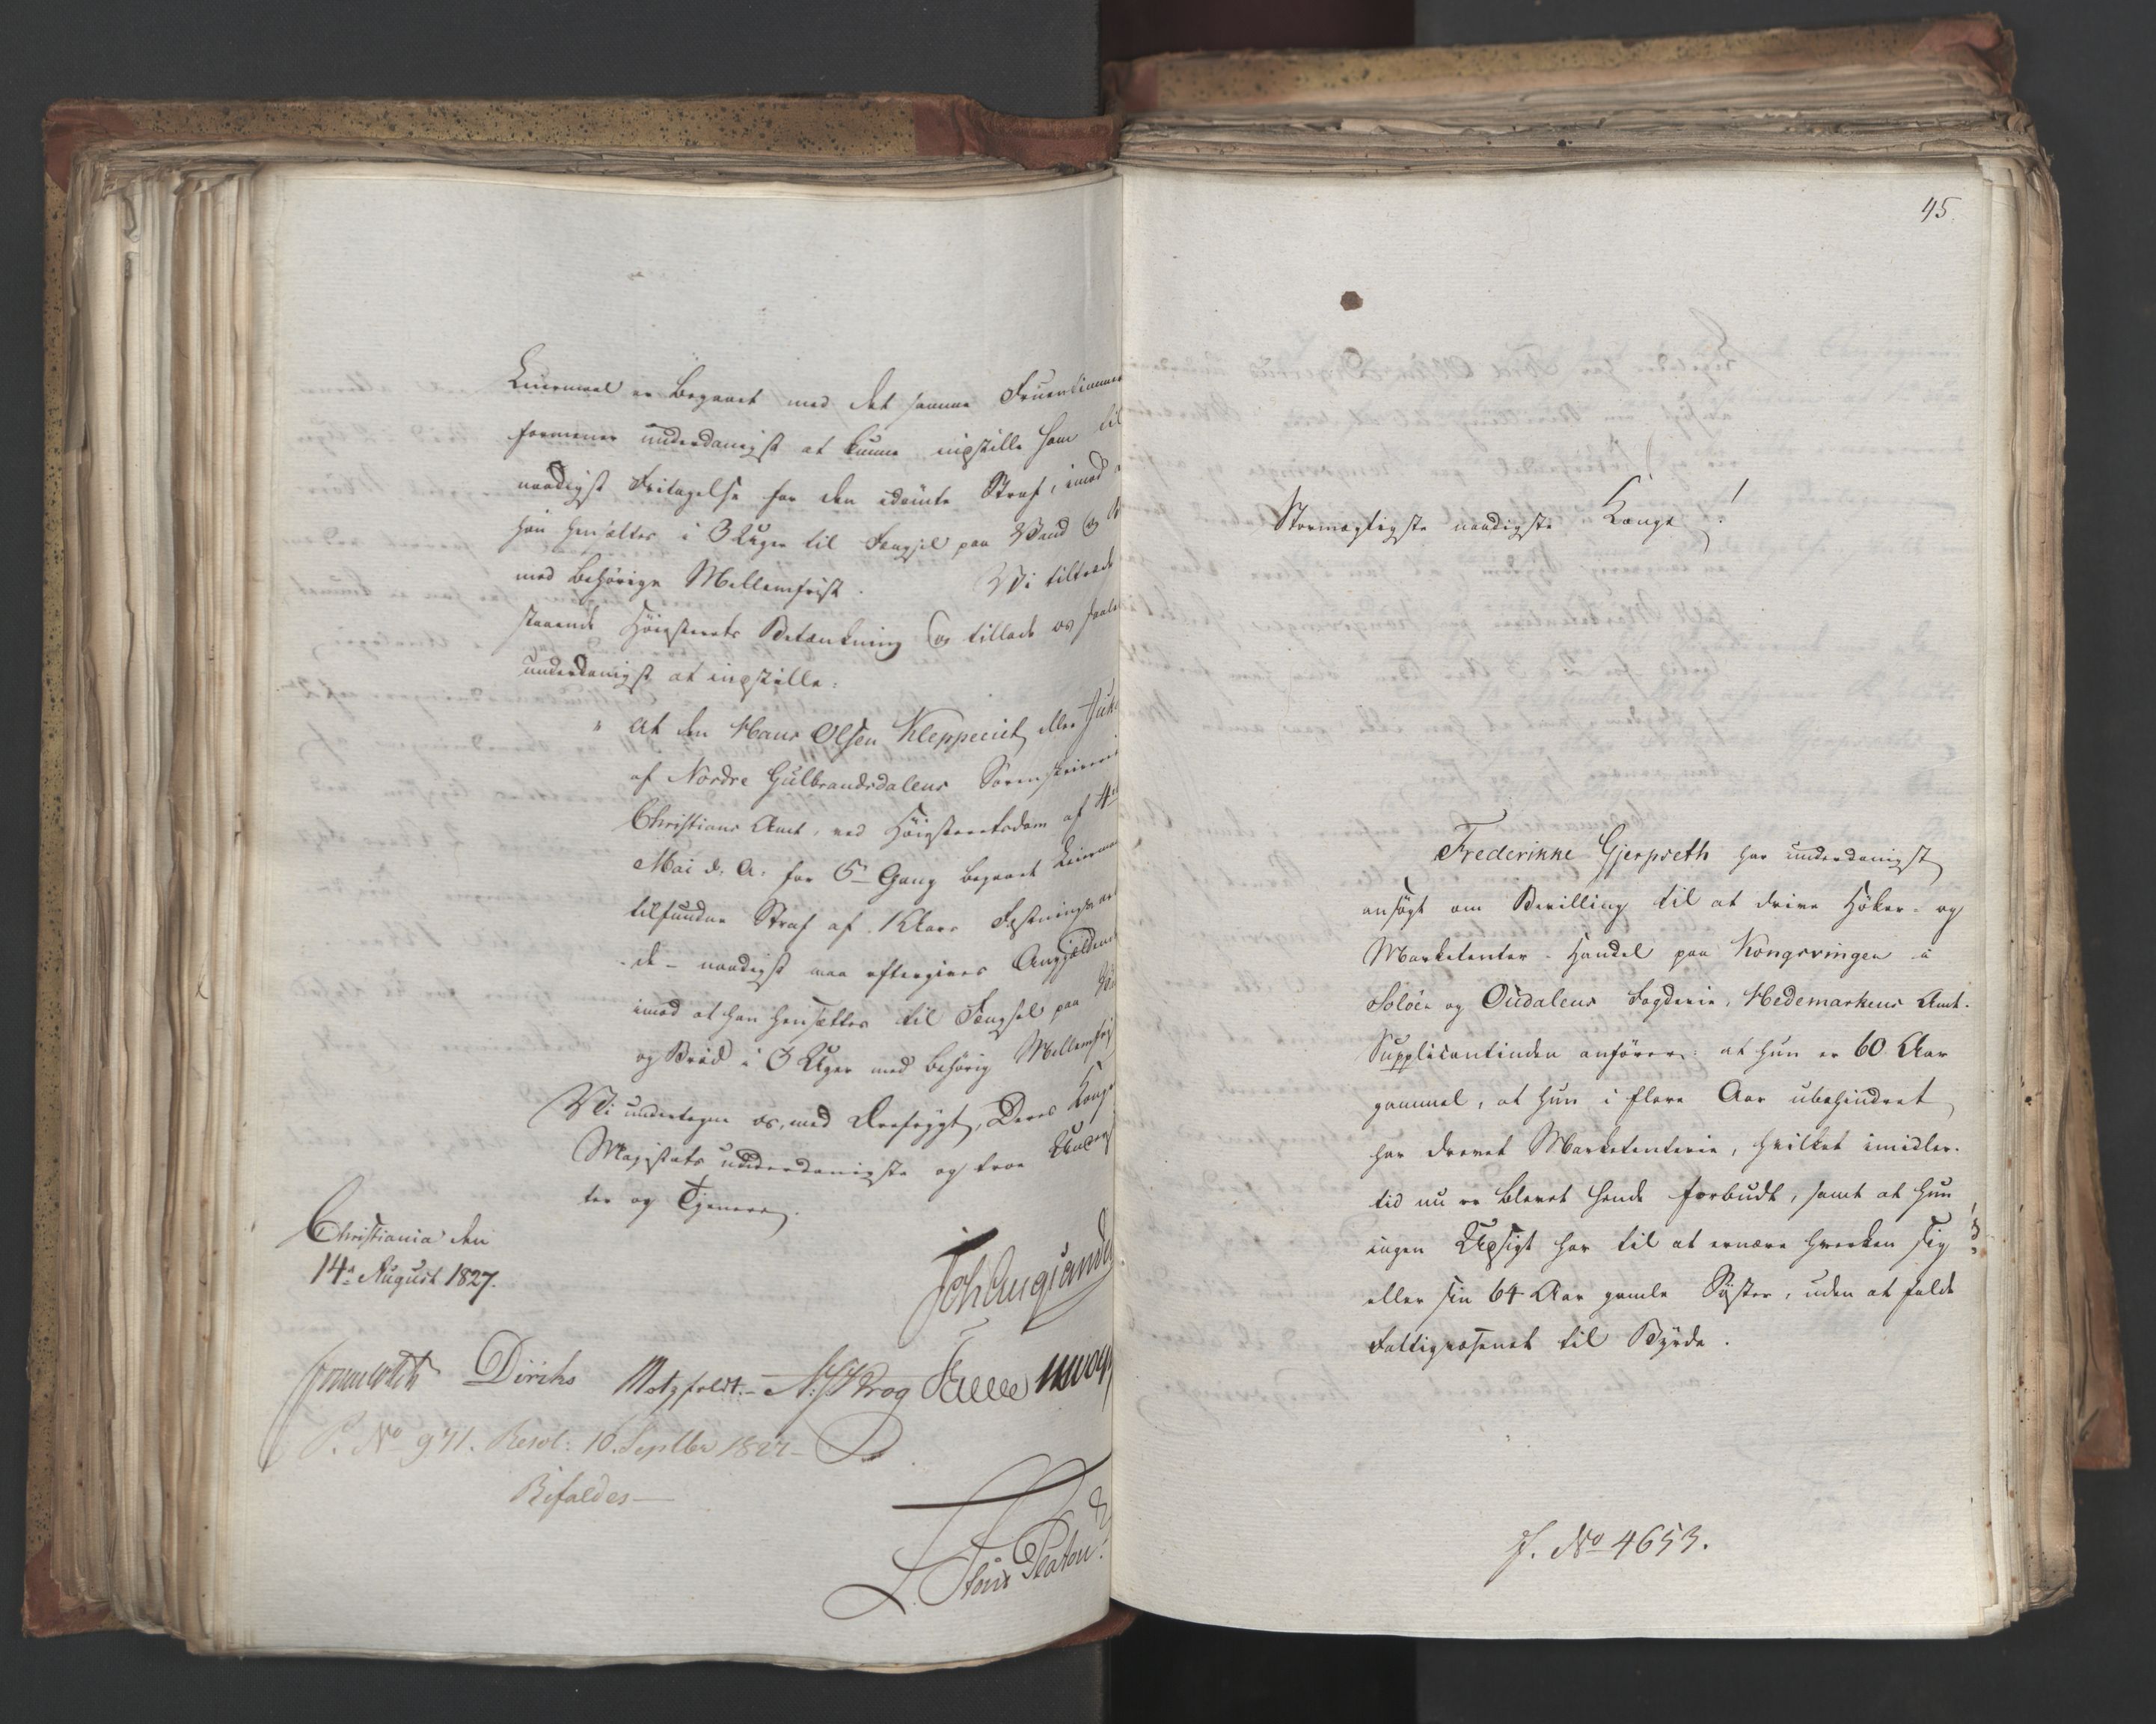 Leiermaal er begaaet med det samme Fruentimmer
formener underdanigst at kunne indstille ham til
naadigst Fritagelse for den idømte Straf, imod
han hensættes i 3 Uger til Fængsel paa Vand og
med behörige Mellemfrist. Vi tiltræde
staaende Höiesterets Betænkning og tillade os saale
underdanigst at indstille:
" at den Hans Olsen Kleppeeiet eller
af Nordre Gulbrandsdalens Sorenskriveri
Christians Amt, ved Höiesteretsdom af 4de
Mai d. A. for 5te Gang begaaet Leierma
tilfundne Straf af 1 Aars Fæstningsar
de - naadigst maa eftergives Angjældende
imod at han hensættes til Fængsel paa
og Bröd i 3 Uger med behörig Mellemfri
Vi undertegne os, med Ærefrygt, Deres Konge
Majestæts underdanigste og troe Unders
ter og Tjenere.
Christiania den
14de August 1827.
Diriks Motzfeldt. Krog
P. No 971. Resol: 10. Septbr 1827
Bifaldes
Platou
45.
Stormægtigste naadigste Konge!
Frederikke Gjerpseth har underdanigst
ansögt om Bevilling til at drive Höker- og
Marketenter-Handel paa Kongsvinger i
Solöer og Oudalens Fogderie, Hedemarkens Amt.
Supplicantinden anförer: at hun er 60 Aar
gammel, at hun i flere Aar ubehindret
har drevet Marketenterie, hvilket imidler-
tid nu er blevet hende forbudt, samt at hun
ingen Udsigt har til at ernære hverken sig
eller sin 64 Aar gamle Söster, uden at falde
Fattigvæsenet til Byrde.
J. No 4653.